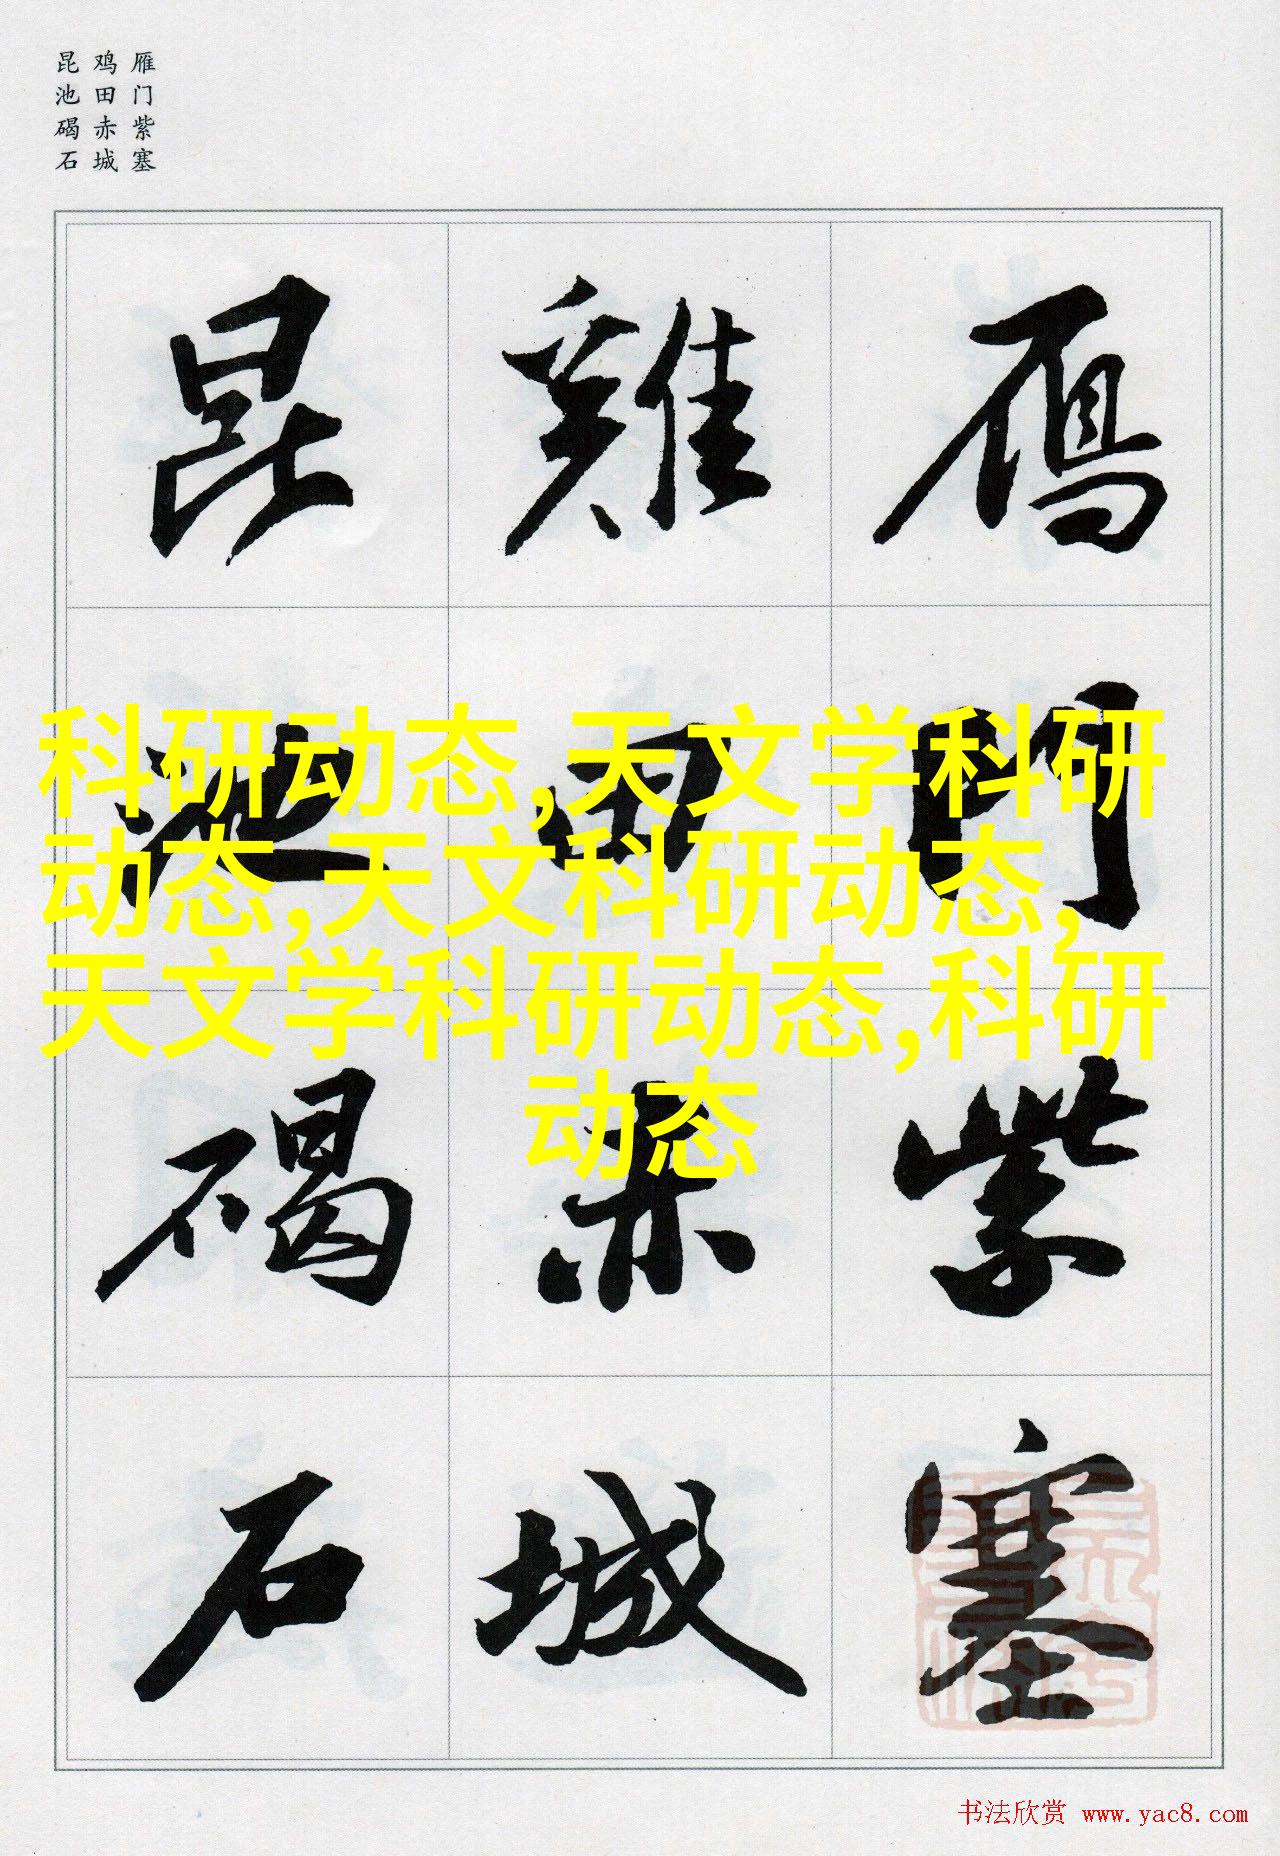 雁门紫塞
鸡田赤城
昆池碣石
雁門紫塞
雞田赤城
昆池碣石
科研动态,天文学科研
动态,天文科研动态,
天文学科研动态,科研
动态
书法欣赏 www.yac8.com